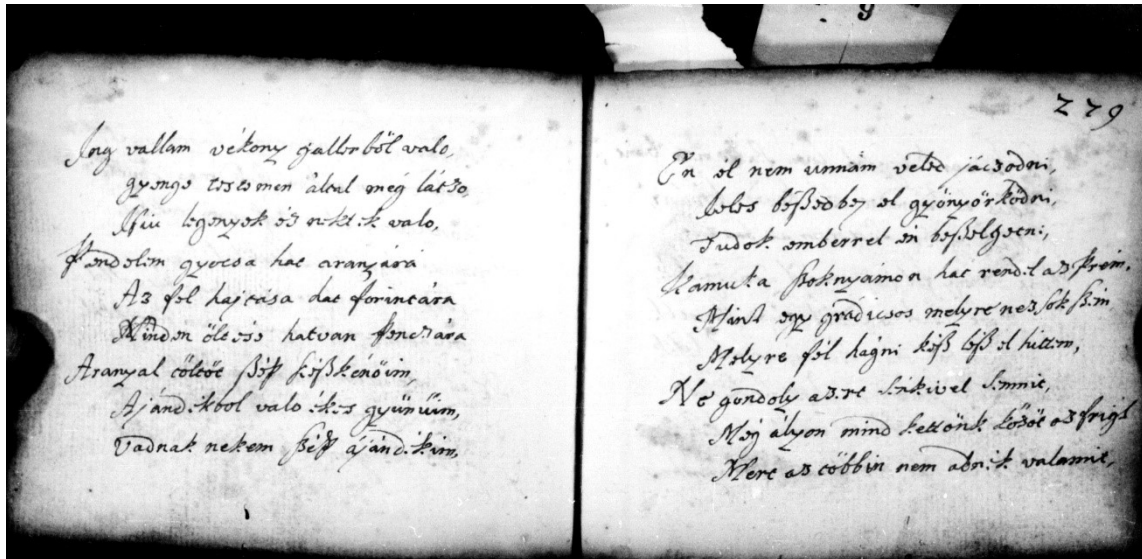 Ing vallam vékony gallerből valo,
gyenge testemen által meg látzo,
Ifiu legenyek és nektek valo,
gyocsa hat aranjára
Az fel hajtása hat forintára
Minden öltése hatvan penczára
Aranyal töltöt ßép keßkenőim,
Ajándikbol való ékes gyűrűim,
Vadnak nekem ßép ájándikim,
279
En el nem unnám veled jáczodni,
beßedbe, el gyönyörködni,
Tudok emberrel én beßelgeeni,
Kamuka ßoknyámon hat rendel az prém,
Mint egy grádicsos melyre ßem
Melyre fel hágni kéß leß el hittem,
Ne gondoly azert senkivel semmit,
Még ályon mind kettőnk között az frigÿ
Mert az többin nem adnék valamit,